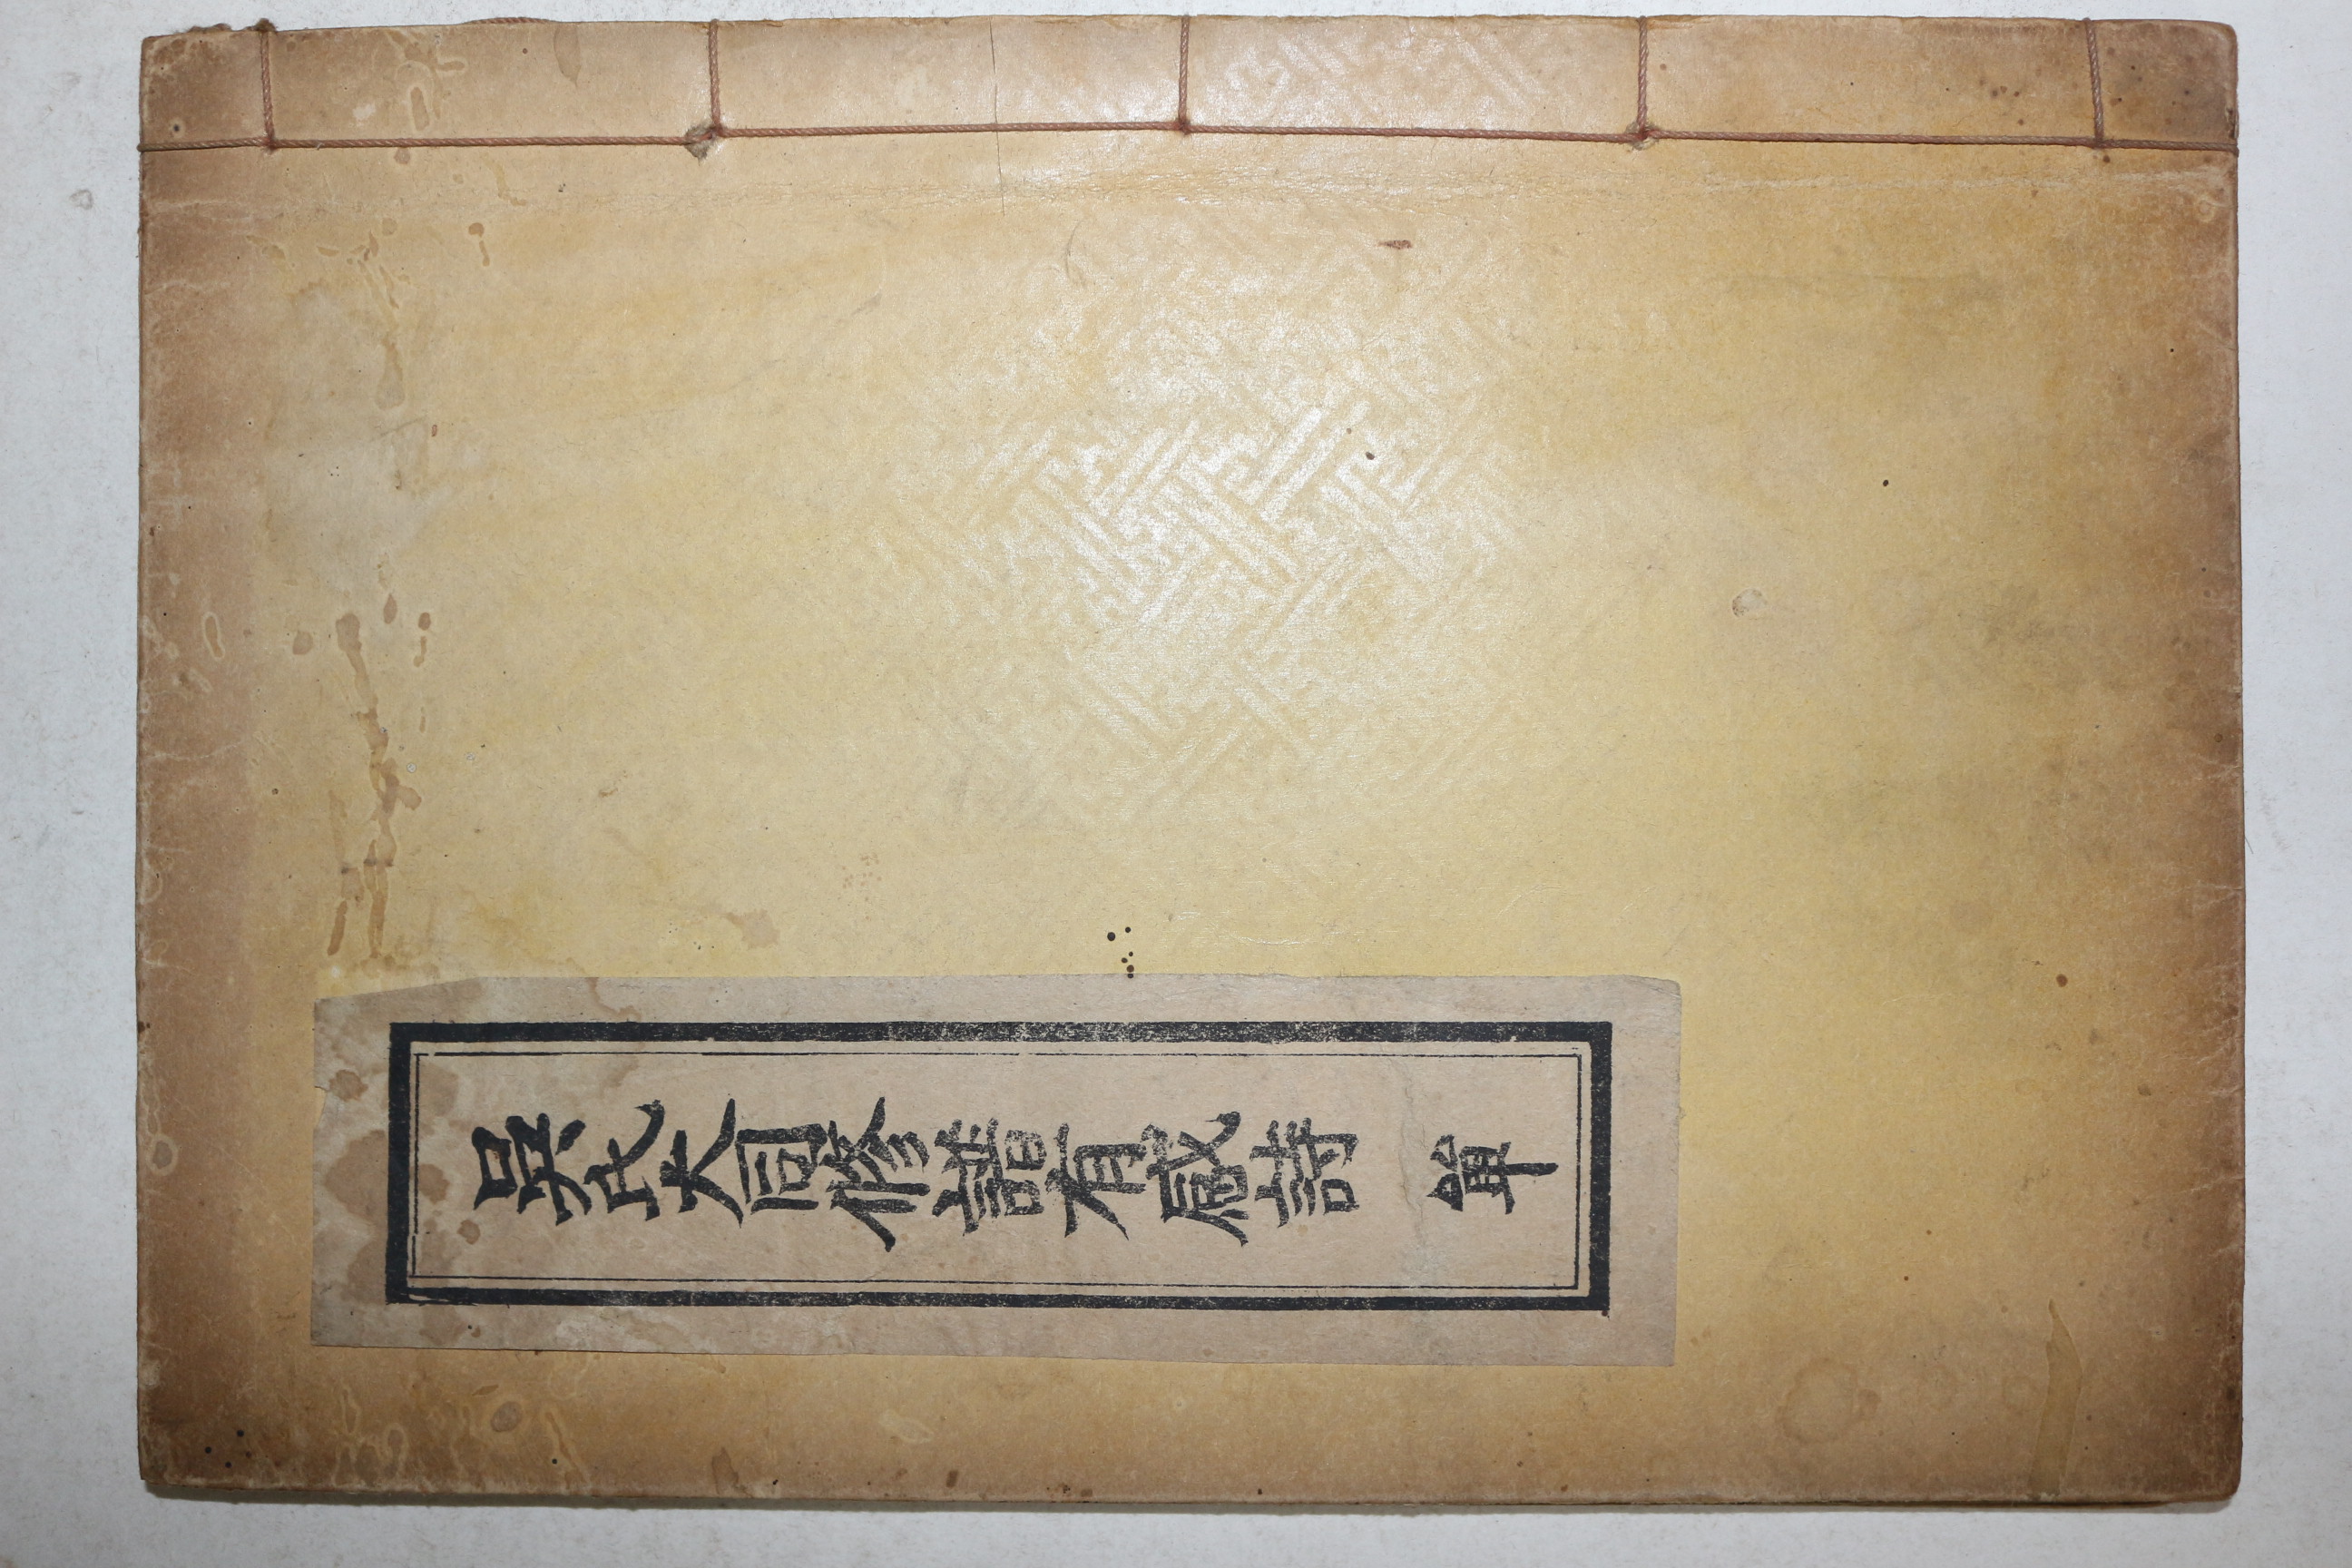 吳氏大同修譜有感詩 單